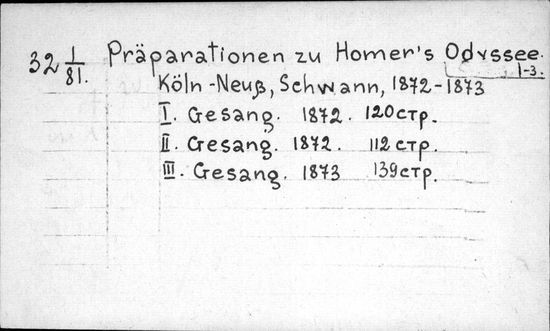 32 1/81. Präparationen zu Homer's Odyssee.
1-3.
Köln-Neuß, Schwann, 1872-1873
I. Gesang. 1872. 120 стр.
II. Gesang. 1872. 112 стр.
III. Gesang. 1873 139 стр.